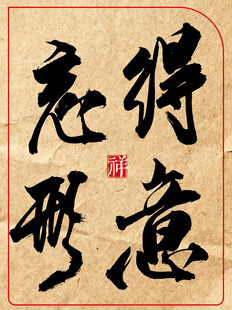 得意
忘形
祥